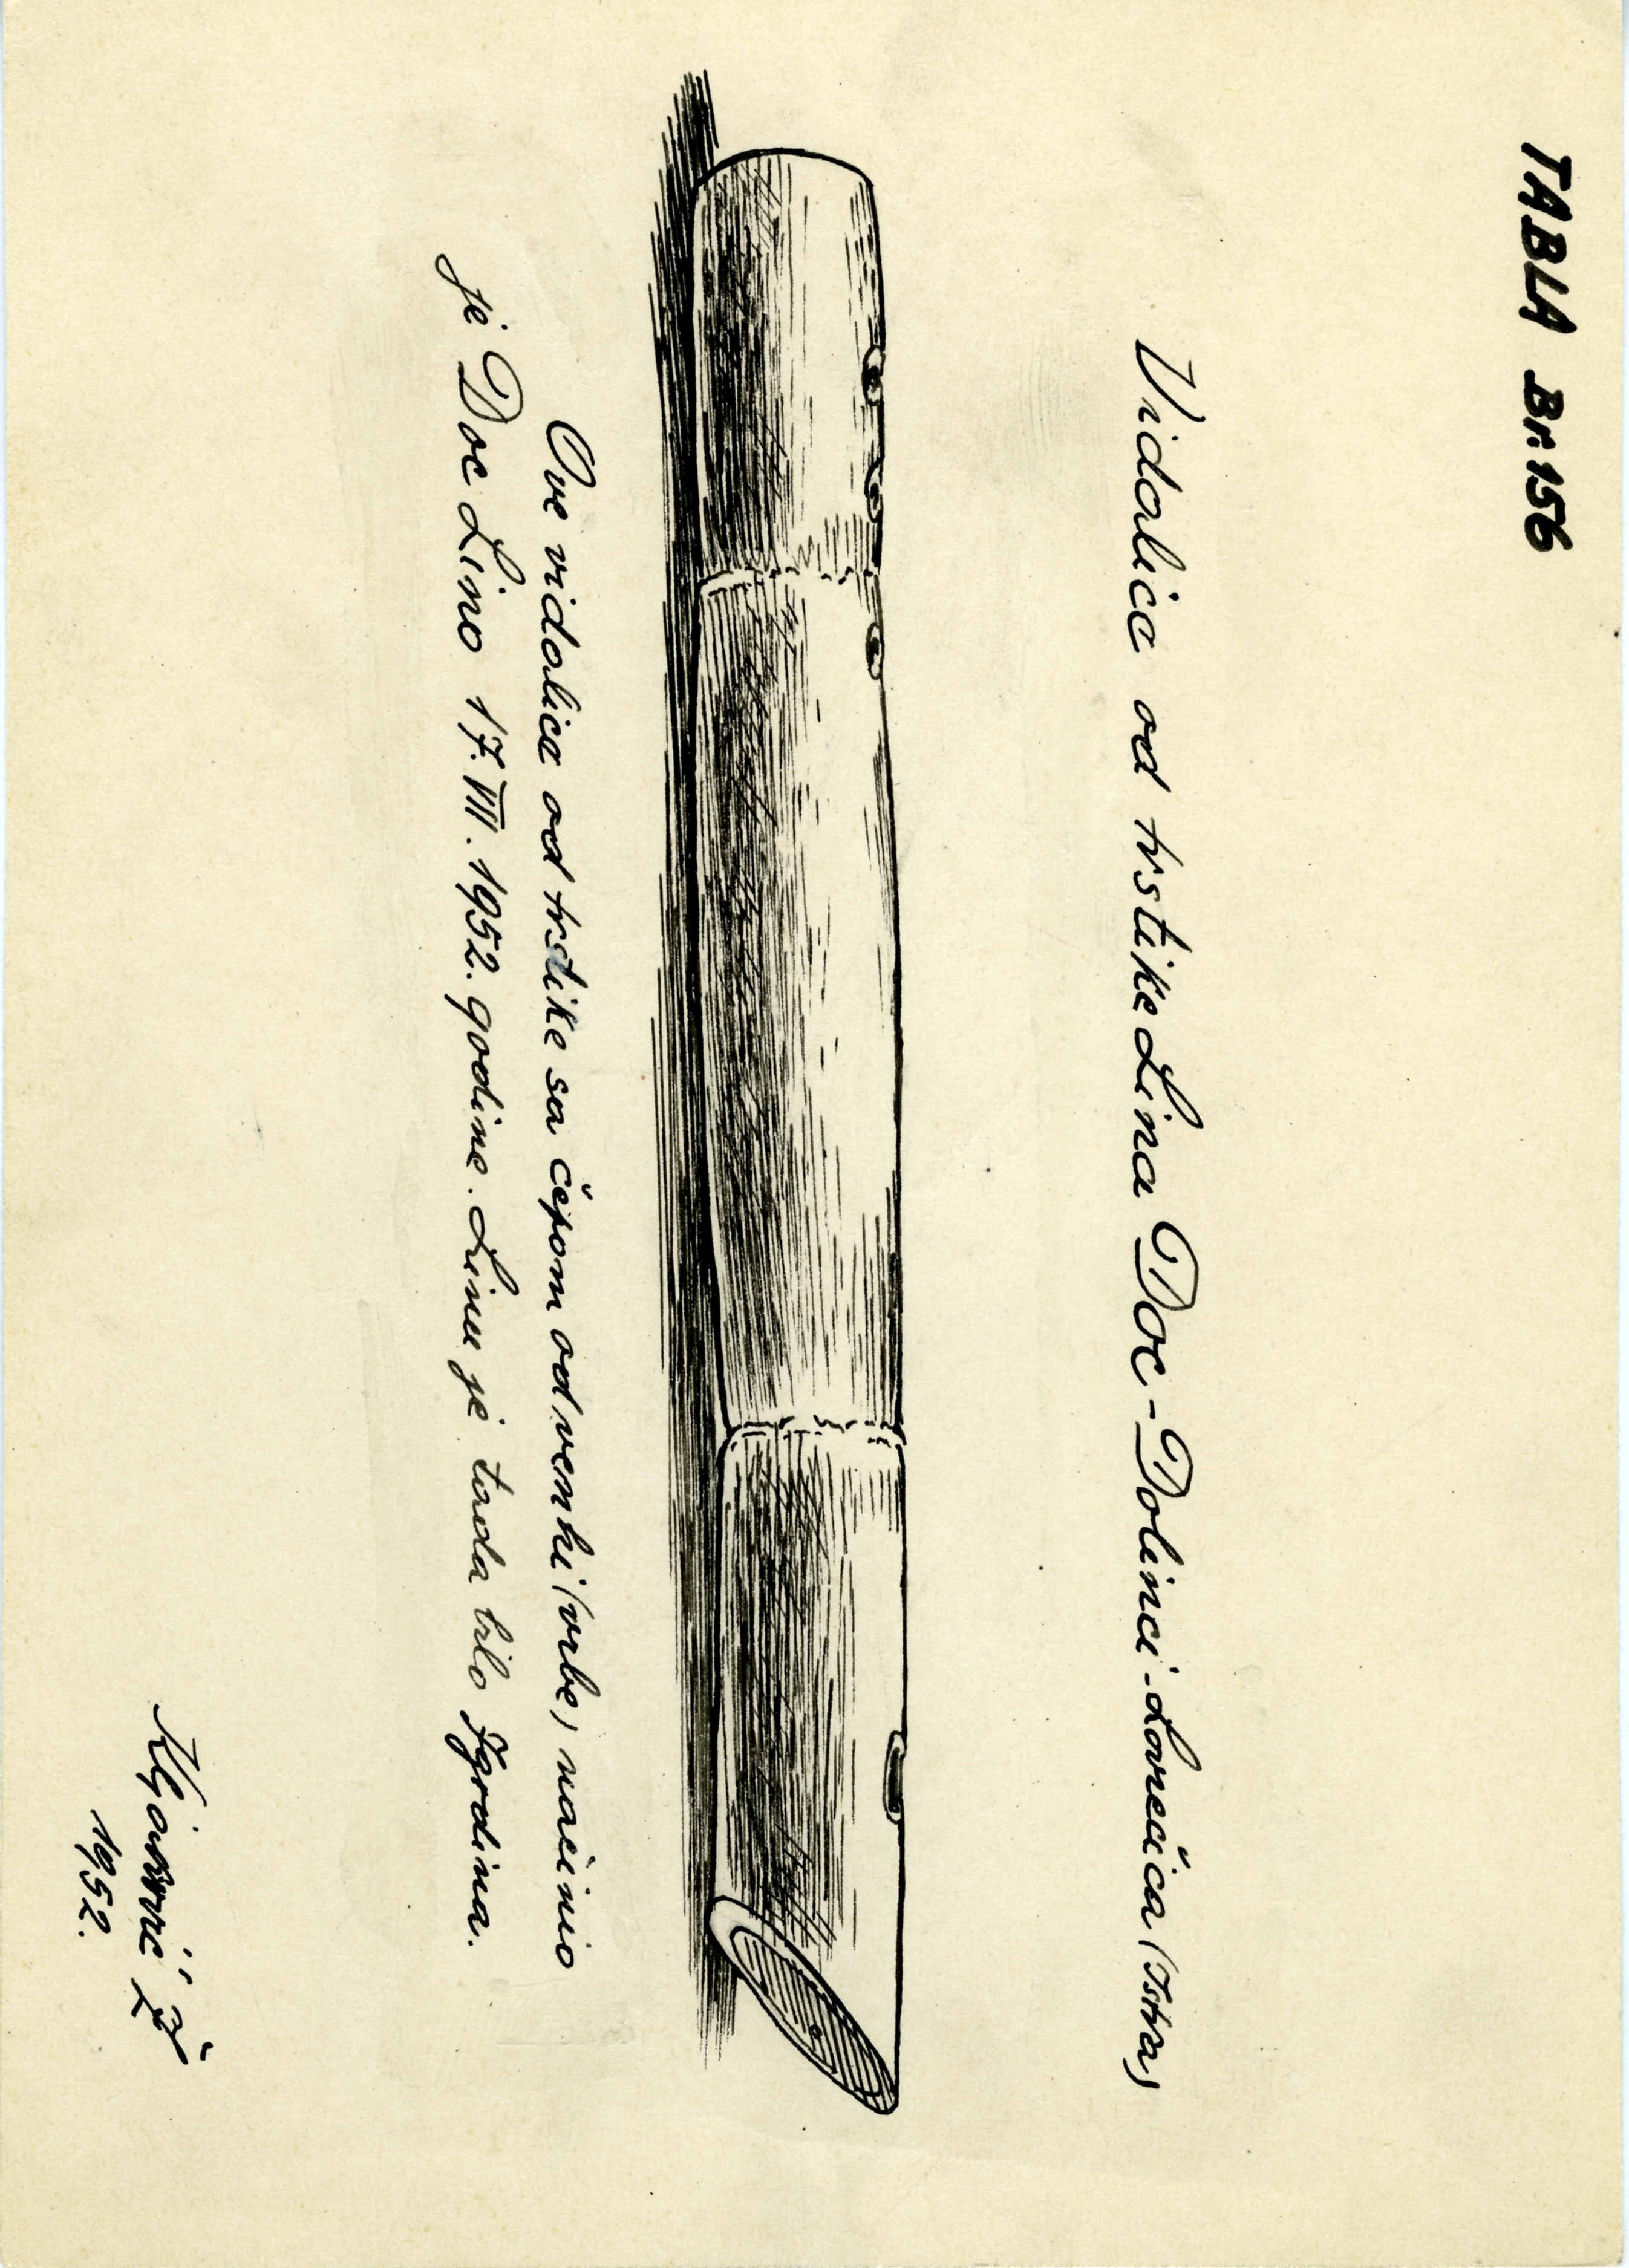 TABLA Br. 156
Vidalica od trstike Lina Doc - Dolinci - Lovrečica (Istra)
Ove vidalice od trstike sa čepom od venki (vrbe) načinio
je Doc Lino 17. VIII. 1952. godine. Linu je tada bilo 7 godina.
Ž
1952.